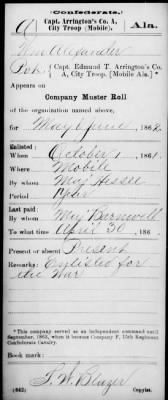 (Confederate.)
Capt. Arrington's Co. A,
City Troop (Mobile). Ala.
Wm Alexander
Pvt., Capt. Edmund T. Arrington's Co.
A, City Troop. [Mobile Ala.]*
Appears on
Company Muster Roll
of the organization named above,
for May & June, 1862.
Enlisted:
When October 1, 1861.
Where Mobile
By whom Maj Hessee
Period 1 Year
Last paid:
By whom Maj Barnwell
To what time April 30, 186
Present or absent Present
Remarks: Enlisted for
the War
*This company served as an independent command until
September, 1863, when it became Company F, 15th Regiment
Confederate Cavalry.
Book mark:
(642)
Copyist.